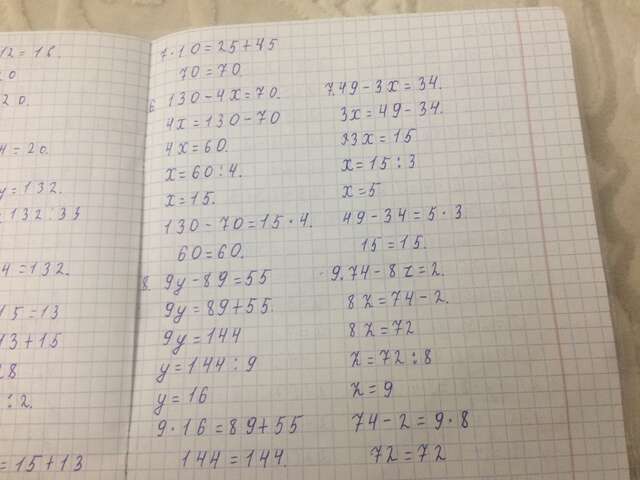 4=20.
=132.
4=132.
15=13
13+15
:8
:2.
=15+13
7·10=25+45
70=70.
6 130-4x=70.
4x=130-70
4x=60.
x=60:4.
x=15.
130-70=15·4.
60=60.
8. 9y-89=55
9y=89+55.
9y=144
y=144:9
y=16
9·16=89+55.
144=144.
7.49-3x=34.
3x=49-34.
33x=15
x=15:3
x=5
49-34=5·3
15=15.
9.74-8z=2.
8z=74-2.
8z=72
z=72:8
z=9
74-2=9·8
72=72